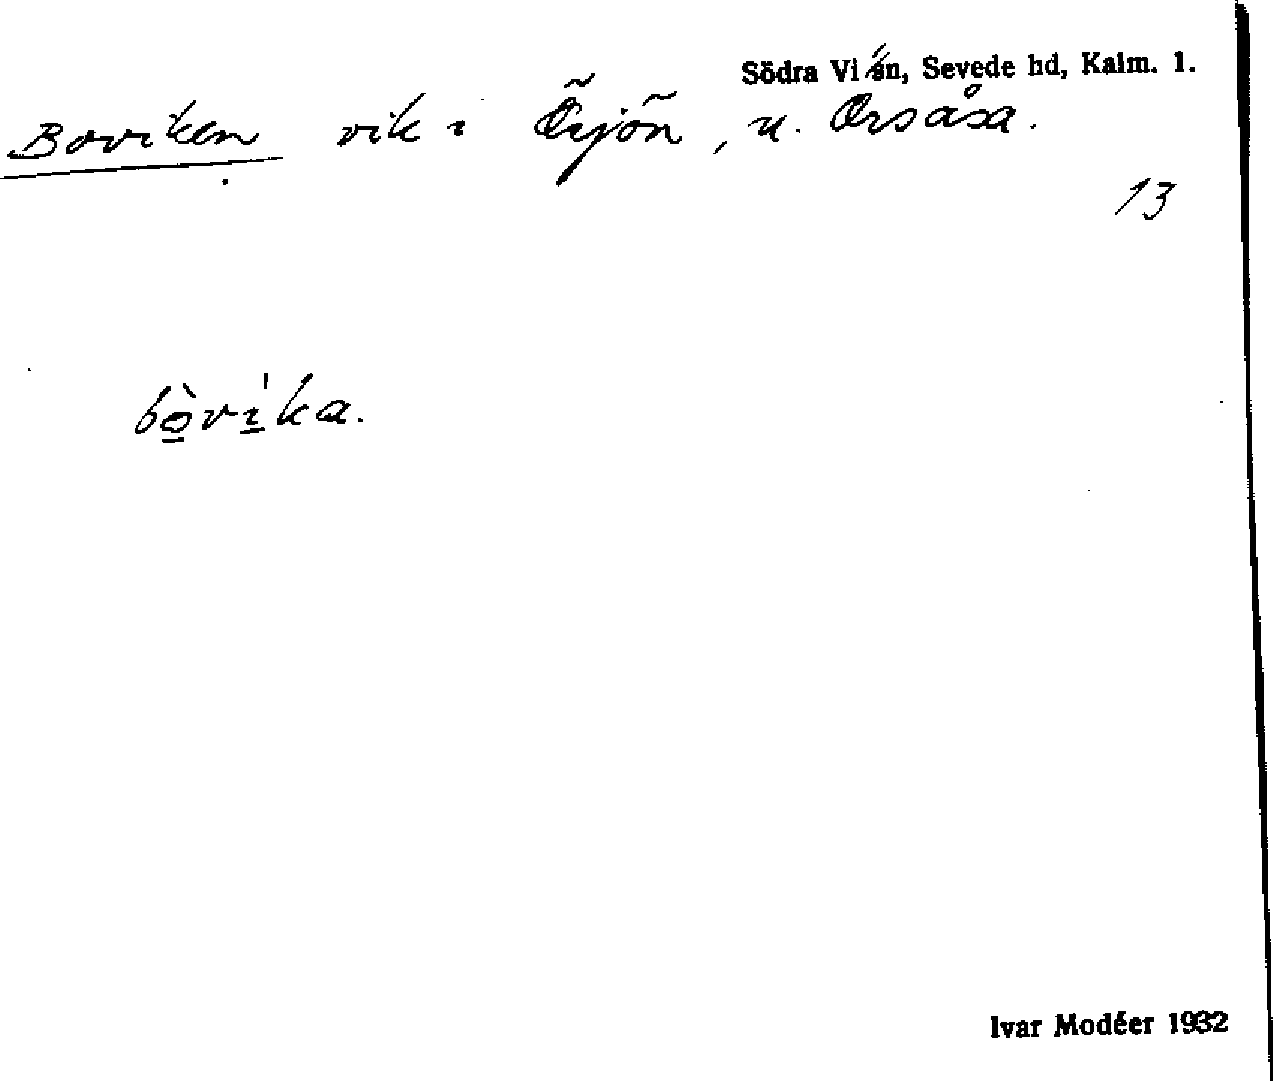 Södra Vi sn, Sevede hd, Kalm. l.
Boviken vik i Örjön, u. Orsåsa.
13
bò̱vi̱̍ka.
Ivar Modéer 1932